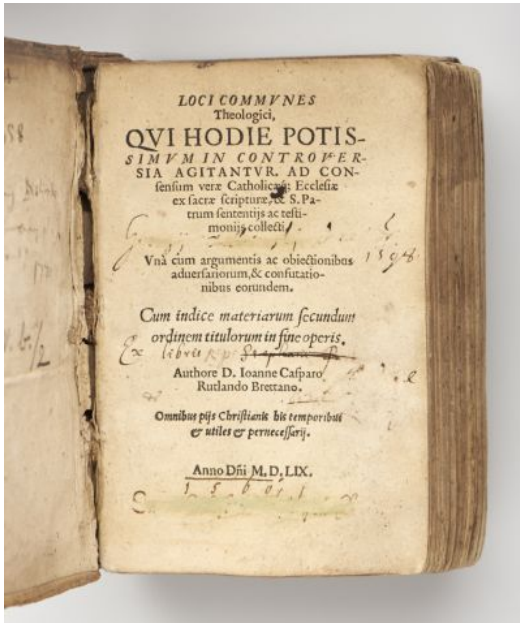 LOCI COMMVNES
Theologici,
QVI HODIE POTIS-
SIMVM IN CONTROVER-
SIA AGITANTVR. AD CON-
sensum veræ Catholicæq; Ecclesiæ
ex sacræ scripturæ, & S. Pa-
trum sententijs ac testi-
monijs collecti,
Vnà cum argumentis ac obiectionibus
aduersariorum, & confutatio-
nibus eorundem.
1598
Cum indice materiarum secundum
ordinem titulorum in fine operis.
Ex libris
Authore D. Ioanne Casparo
Rutlando Brettano.
Omnibus pijs Christianis his temporibus
& utiles & pernecessarij.
Anno Dñi M. D. LIX.